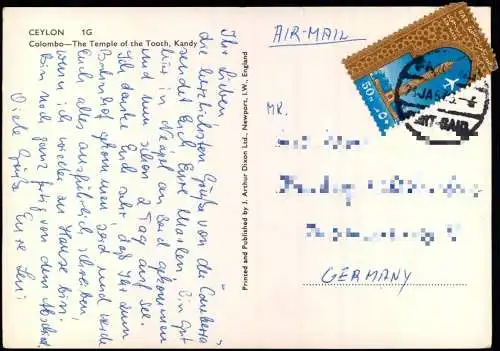 CEYLON 1G
Colombo—The Temple of the Tooth, Kandy
Ihr Lieben,
die herzlichsten Grüße von der "Canberra"
sendet Euch Eure Marlen. Bin gut
hier in Neapel an Bord gekommen
und nun schon 2 Tag auf See.
Ich danke Euch sehr, daß Ihr zum
Bahnhof gekommen seid und werde
Euch alles ausführlich schreiben,
wenn ich wieder zu Hause bin.
Bin noch ganz fertig von dem Abschied.
Viele Grüße Eure
Printed and Published by J. Arthur Dixon Ltd., Newport, I.W., England
AIR-MAIL
MR.
GERMANY
50
PORT-SAID